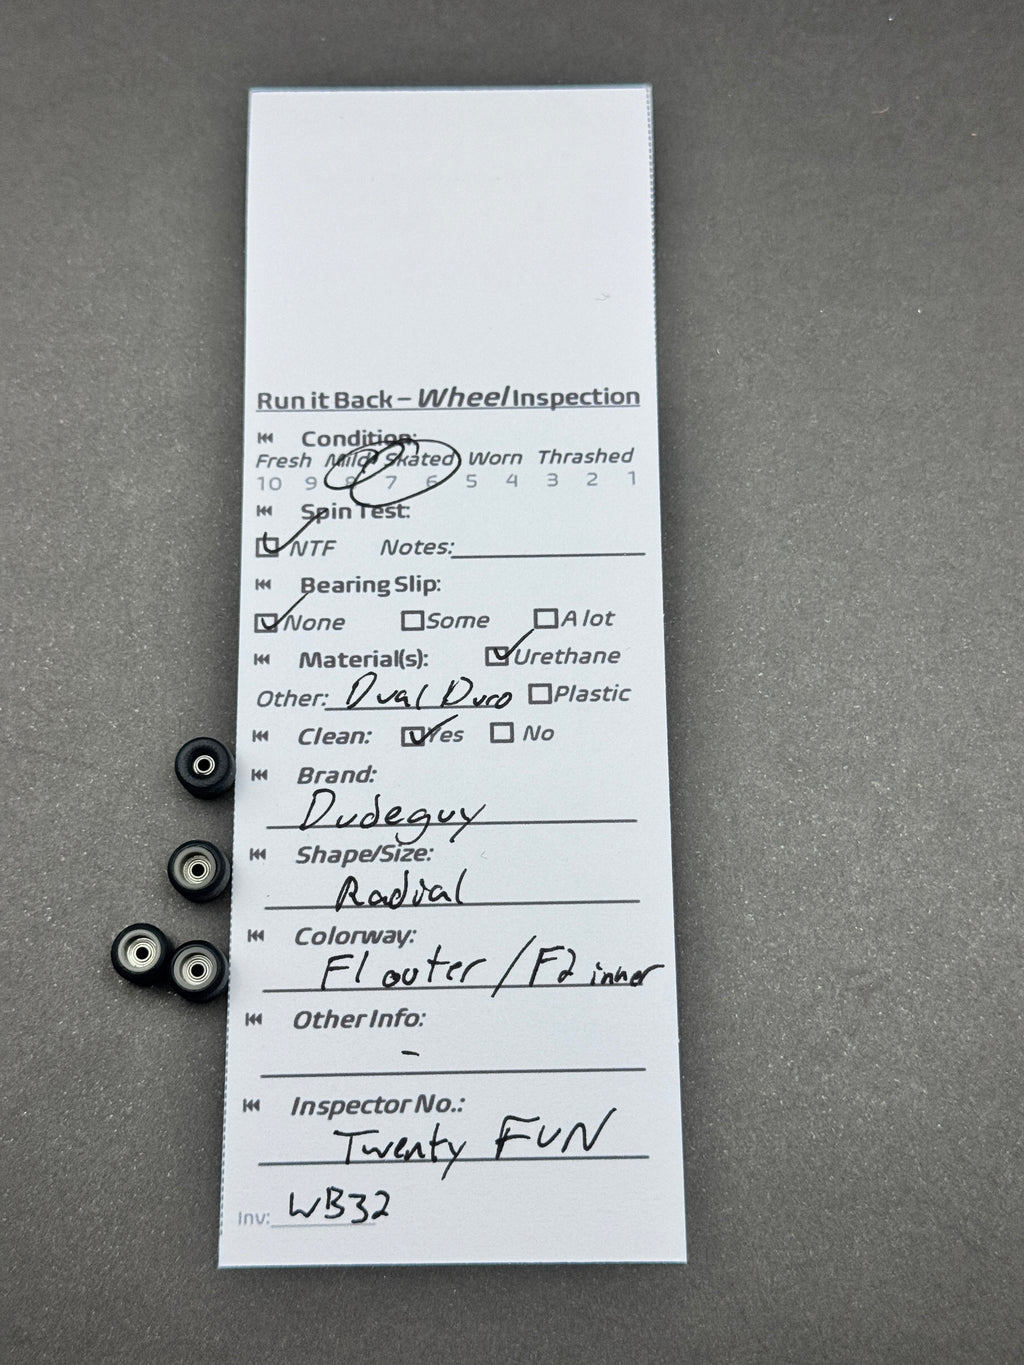 Run it Back – Wheel Inspection
Condition:
Fresh Mild Skated Worn Thrashed
10 9 8 7 6 5 4 3 2 1
Spin Test:
NTF Notes:
Bearing Slip:
None Some A lot
Material(s): Urethane
Other: Dual Duro Plastic
Clean: Yes No
Brand:
Dudeguy
Shape/Size:
Radial
Colorway:
F1 outer / F2 inner
Other Info:
-
Inspector No.:
Twenty FUN
Inv: WB32